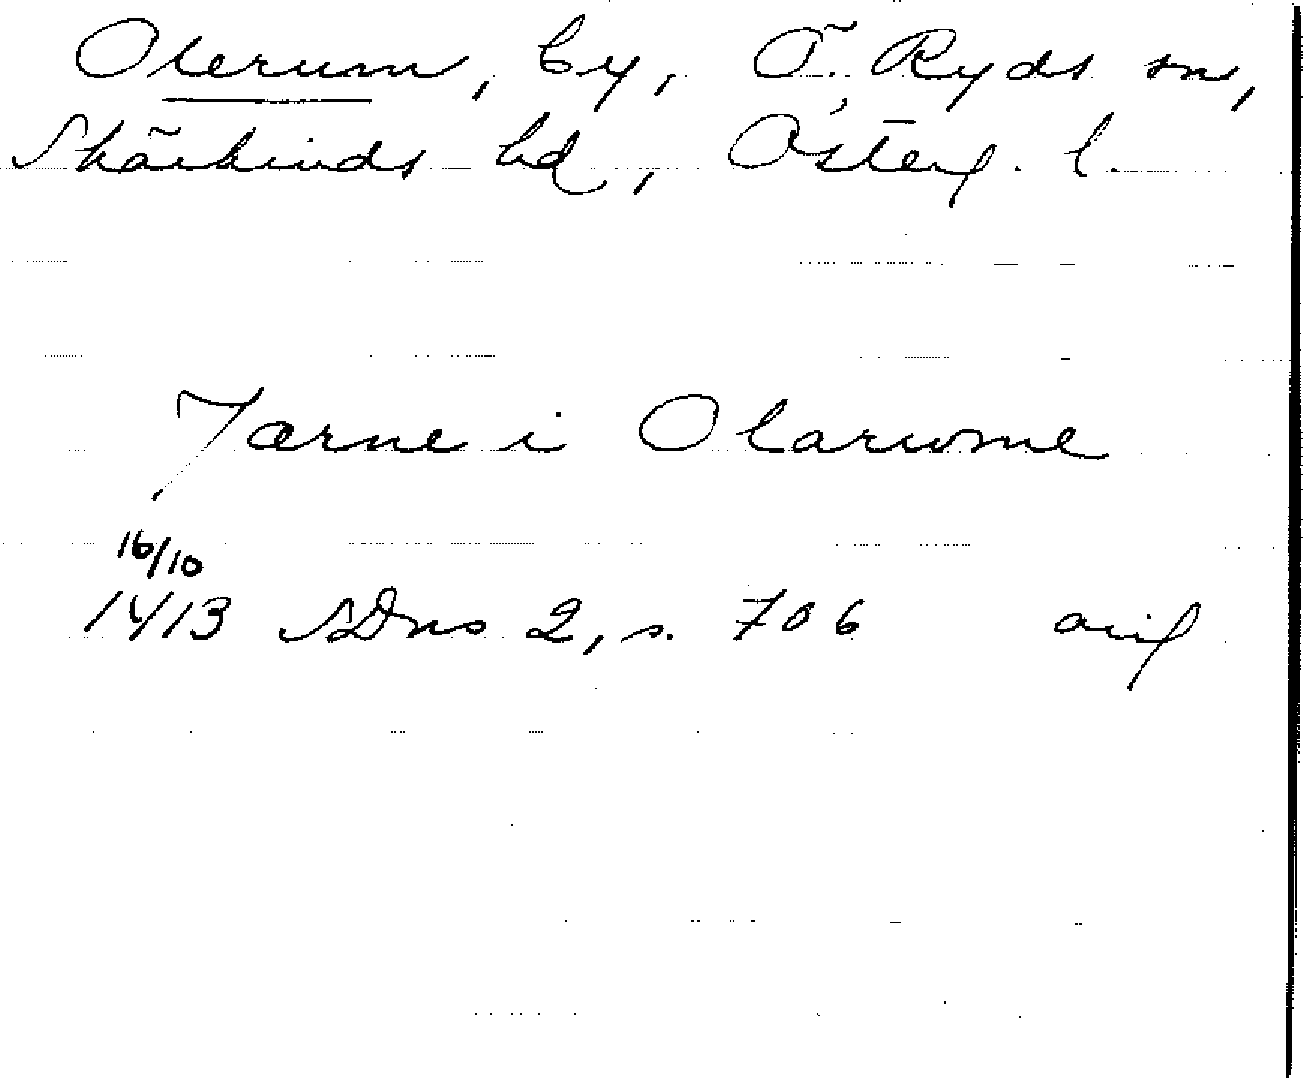 Olerum, by, Ö. Ryds sn,
Skärkinds hd, Österg. l.
Jærne i Olarwme
16/10
1413 SDns 2, s. 706 avil